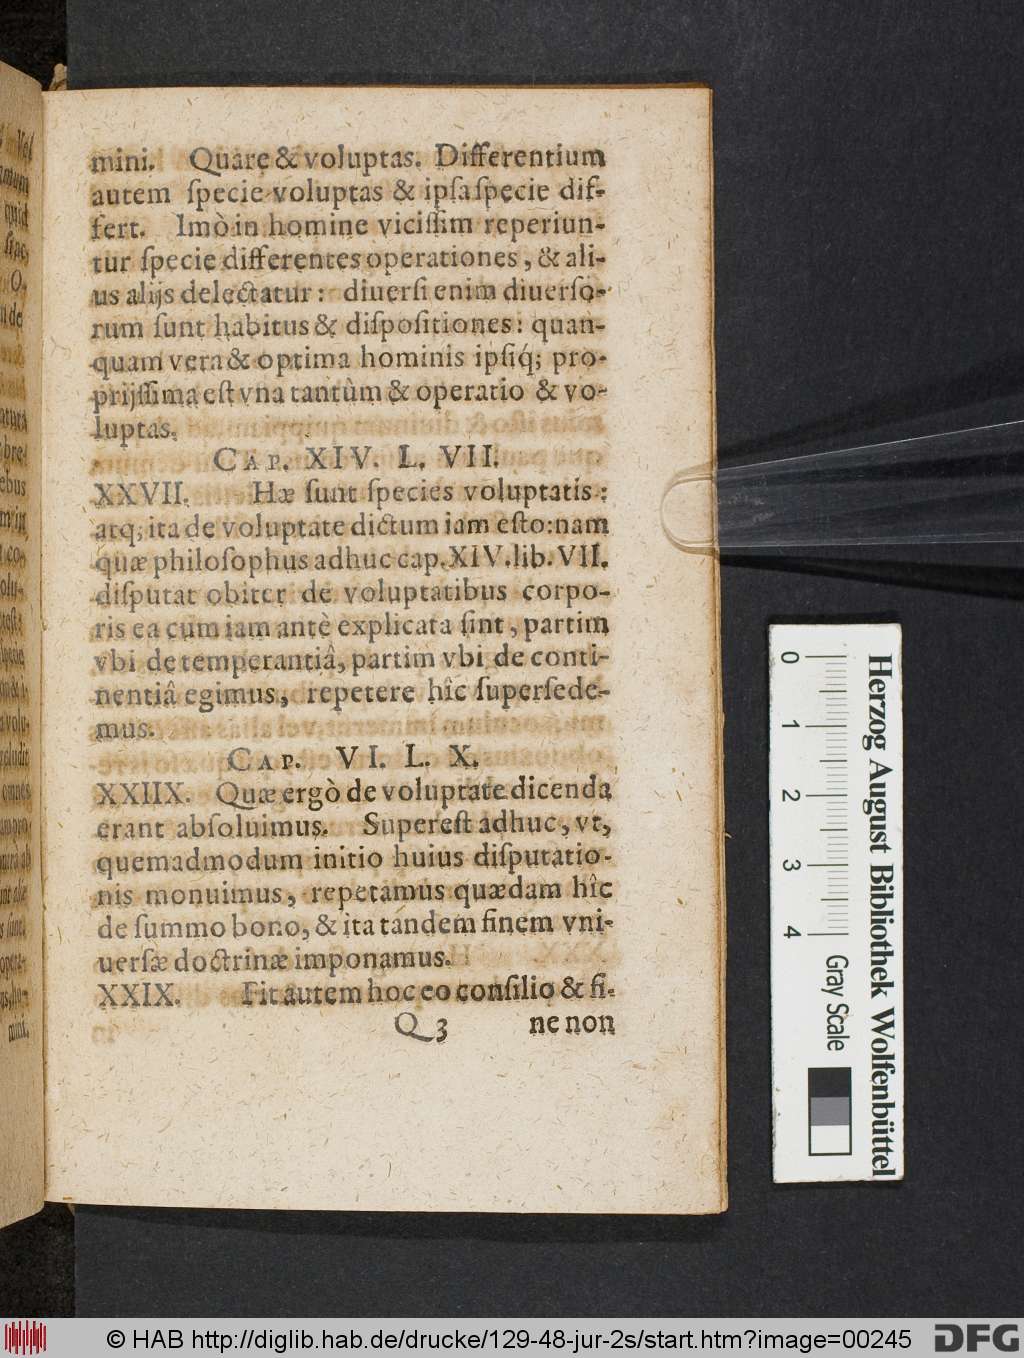 mini. Quare & voluptas. Differentium
autem ſpecie voluptas & ipſa ſpecie dif-
fert. Imò in homine viciſſim reperiun-
tur ſpecie differentes operationes, & ali-
us alijs delectatur: diuerſi enim diuerſo-
rum ſunt habitus & diſpoſitiones: quan-
quam vera & optima hominis ipſiq́; pro-
prijſſima eſt vna tantùm & operatio & vo-
luptas.
CAP. XIV. L. VII.
XXVII. Hæ ſunt ſpecies voluptatis:
atq; ita de voluptate dictum iam eſto: nam
quæ philoſophus adhuc cap. XIV. lib. VII.
diſputat obiter de voluptatibus corpo-
ris ea cum iam antè explicata ſint, partim
vbi de temperantiâ, partim vbi de conti-
nentiâ egimus, repetere hîc ſuperſede-
mus.
CAP. VI. L. X.
XXIIX. Quæ ergò de voluptate dicenda
erant abſoluimus. Supereſt adhuc, vt,
quemadmodum initio huius diſputatio-
nis monuimus, repetamus quædam hîc
de ſummo bono, & ita tandem finem vni-
uerſæ doctrinæ imponamus.
XXIX. Fit autem hoc eo conſilio & fi-
Q 3 ne non
0 1 2 3 4
Herzog August Bibliothek Wolfenbüttel
Gray Scale
© HAB http://diglib.hab.de/drucke/129-48-jur-2s/start.htm?image=00245
DFG